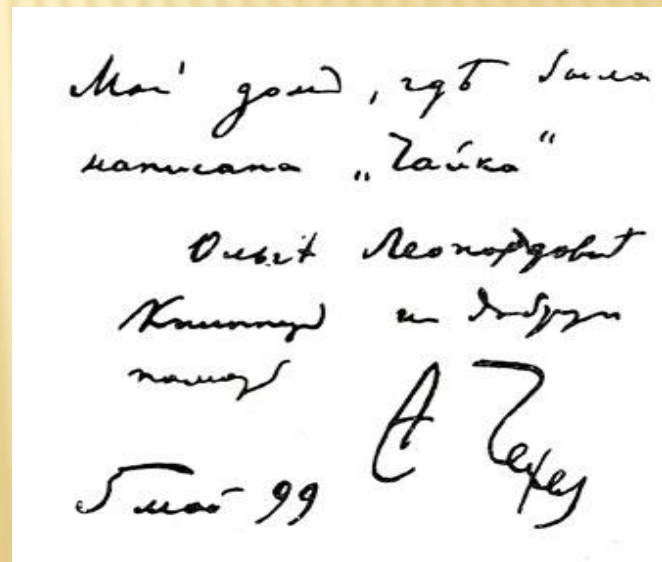 Мой домъ, гдѣ была
написана „Чайка“
Ольгѣ Леонардовнѣ
Книпперъ на добрую
память
А Чехов
5 май 99